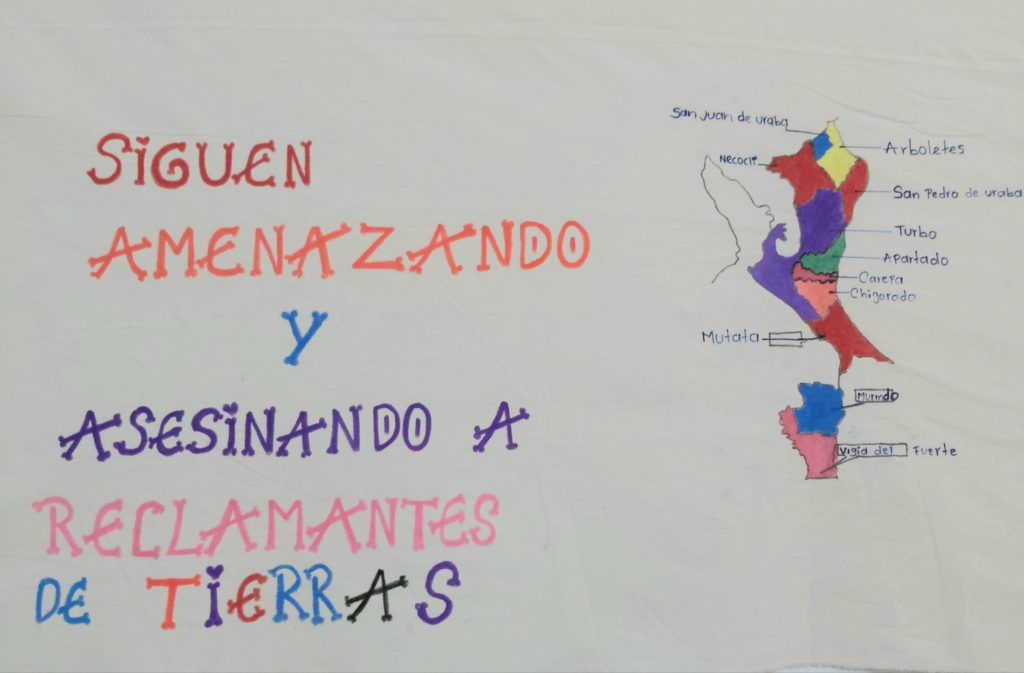 SiGUEN
AMENAZANDO
Y
ASESiNANDO A
RECLAMANTES
DE TiERRAS
San Juan de uraba
Arboletes
Necocli
San Pedro de uraba
Turbo
Apartado
Carepa
Chigorodo
Mutata
Murindo
Vigia del Fuerte